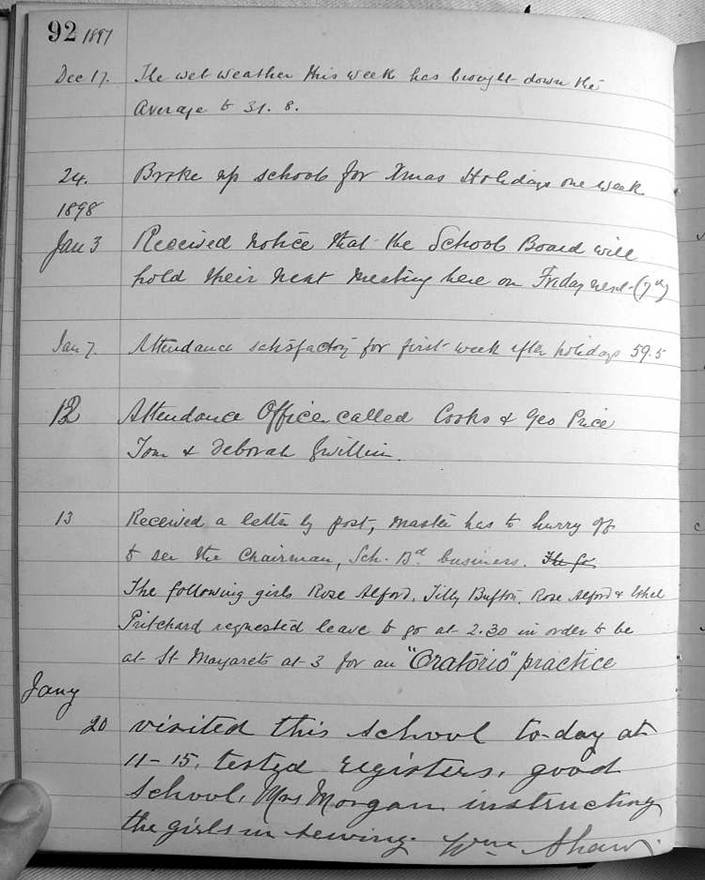 92 1897
Dec 17. The wet weather this week has brought down the
Average to 31. 8.
24. Broke up schools for Xmas Holidays one week
1898
Jan 3 Received notice that the School Board will
hold their next meeting here on Friday next (7th)
Jan 7. Attendance satisfactory for first week after holidays 59.5
12 Attendance Officer called Cooks & Geo Price
Tom & Deborah Gwillim.
13 Received a letter by post, Master has to hurry off
to see the Chairman, Sch. Bd business. The fo
The following girls Rose Alford, Tilly Bufton, Rose Alford & Ethel
Pritchard requested leave to go at 2.30 in order to be
at St Margarets at 3 for an "Oratorio" practice
Jany
20 visited this school to-day at
11-15. tested registers, good
school, Mrs Morgan instructing
the girls in sewing. Wm Shaw.